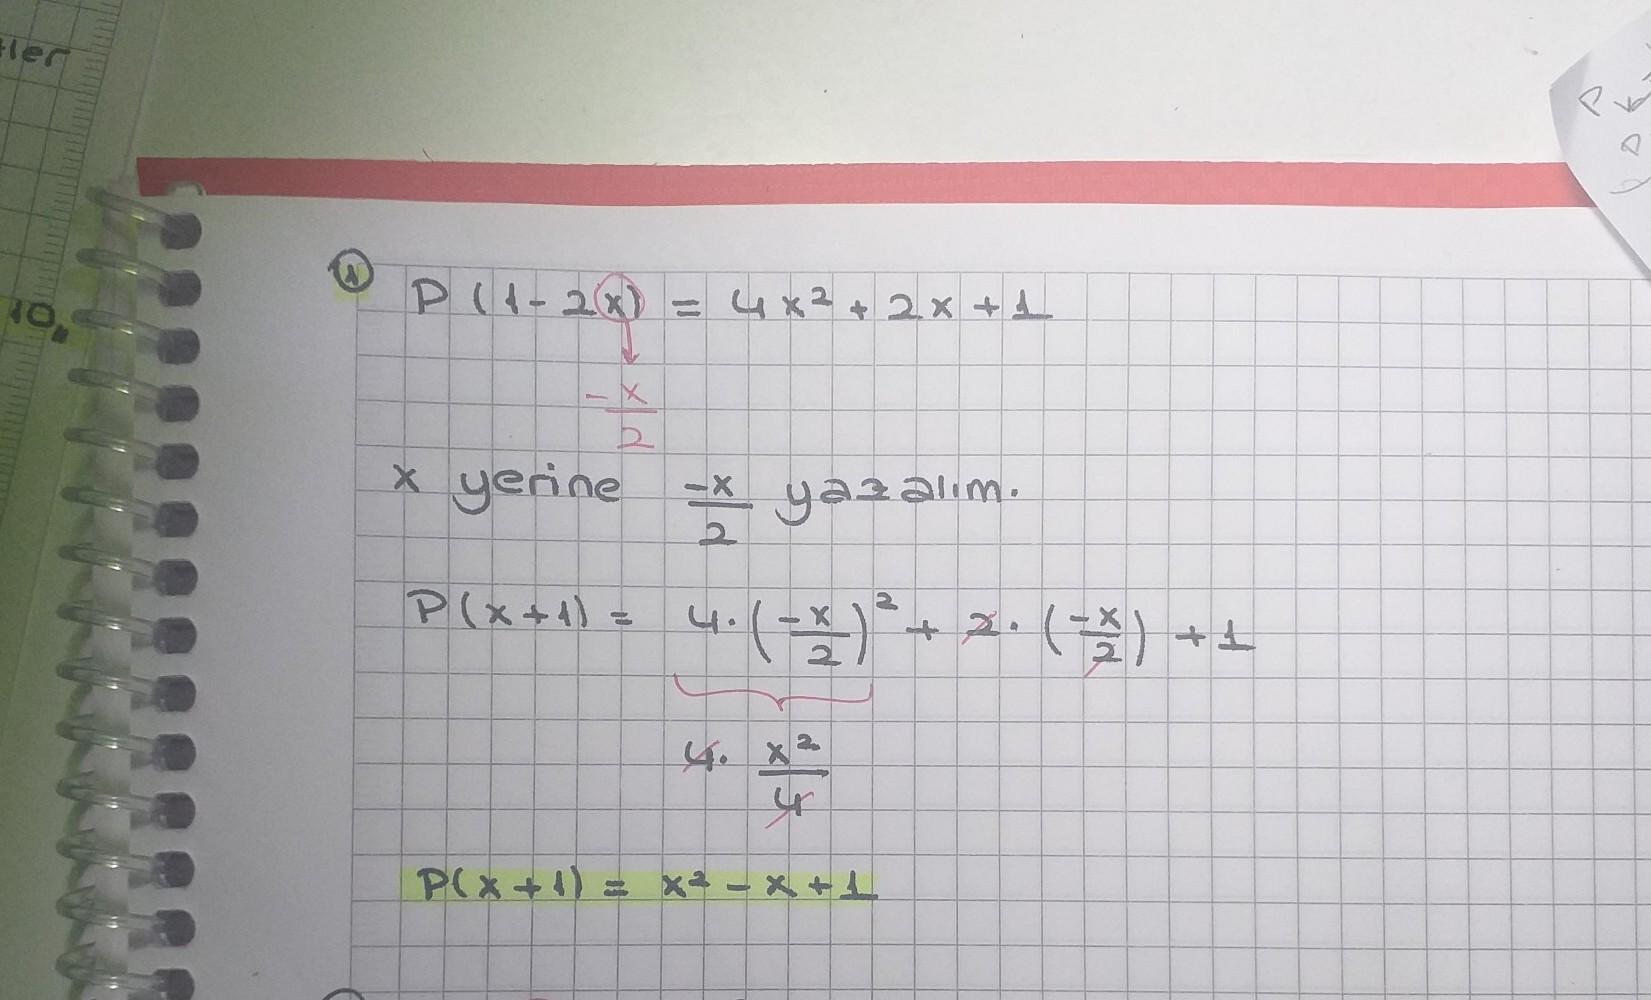 10.
① P(1-2x) = 4x² + 2x + 1
-x/2
x yerine -x/2 yazalım.
P(x+1) = 4.(-x/2)² + 2.(-x/2) + 1
4. x²/4
P(x+1) = x² - x + 1